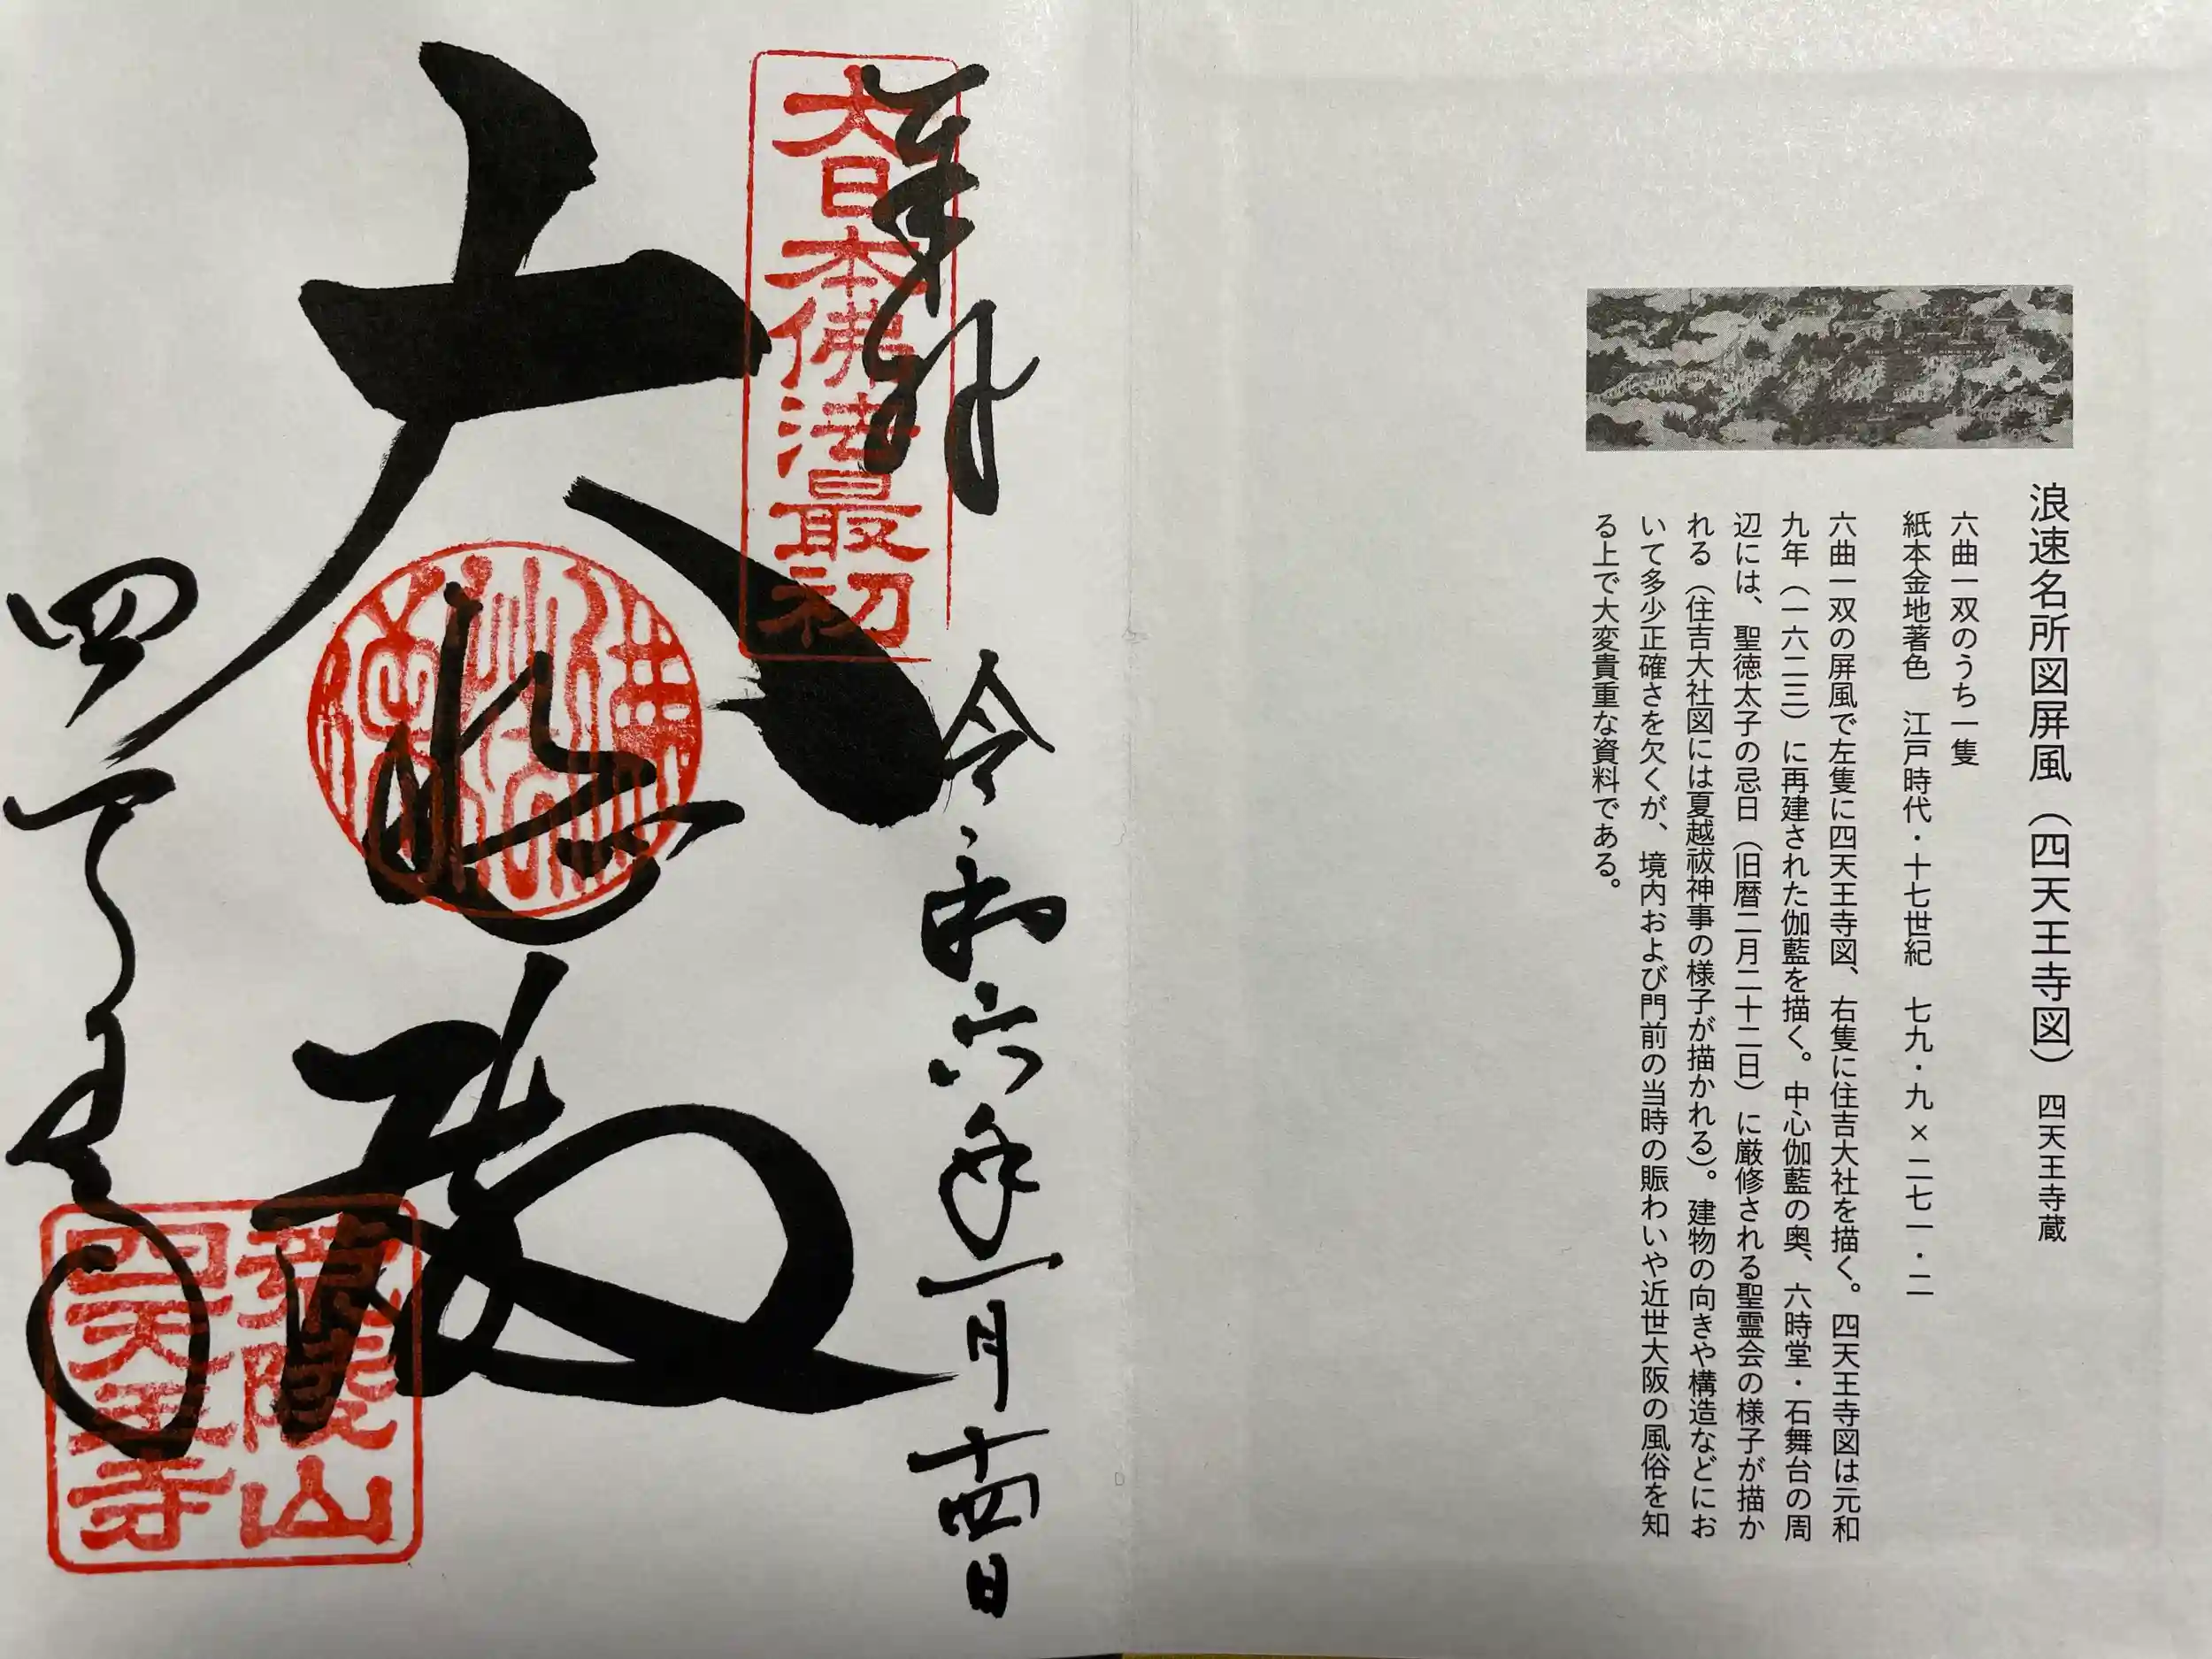 浪速名所図屏風（四天王寺図） 四天王寺蔵
六曲一双のうち一隻
紙本金地著色 江戸時代・十七世紀 七九・九×二七一・二
六曲一双の屏風で左隻に四天王寺図、右隻に住吉大社を描く。四天王寺図は元和
九年（一六二三）に再建された伽藍を描く。中心伽藍の奥、六時堂・石舞台の周
辺には、聖徳太子の忌日（旧暦二月二十二日）に厳修される聖霊会の様子が描か
れる（住吉大社図には夏越祓神事の様子が描かれる）。建物の向きや構造などにお
いて多少正確さを欠くが、境内および門前の当時の賑わいや近世大阪の風俗を知
る上で大変貴重な資料である。
奉拝
令和六年一月十四日
大日本佛法最初
大悲殿
四天王寺
荒陵山
四天王寺